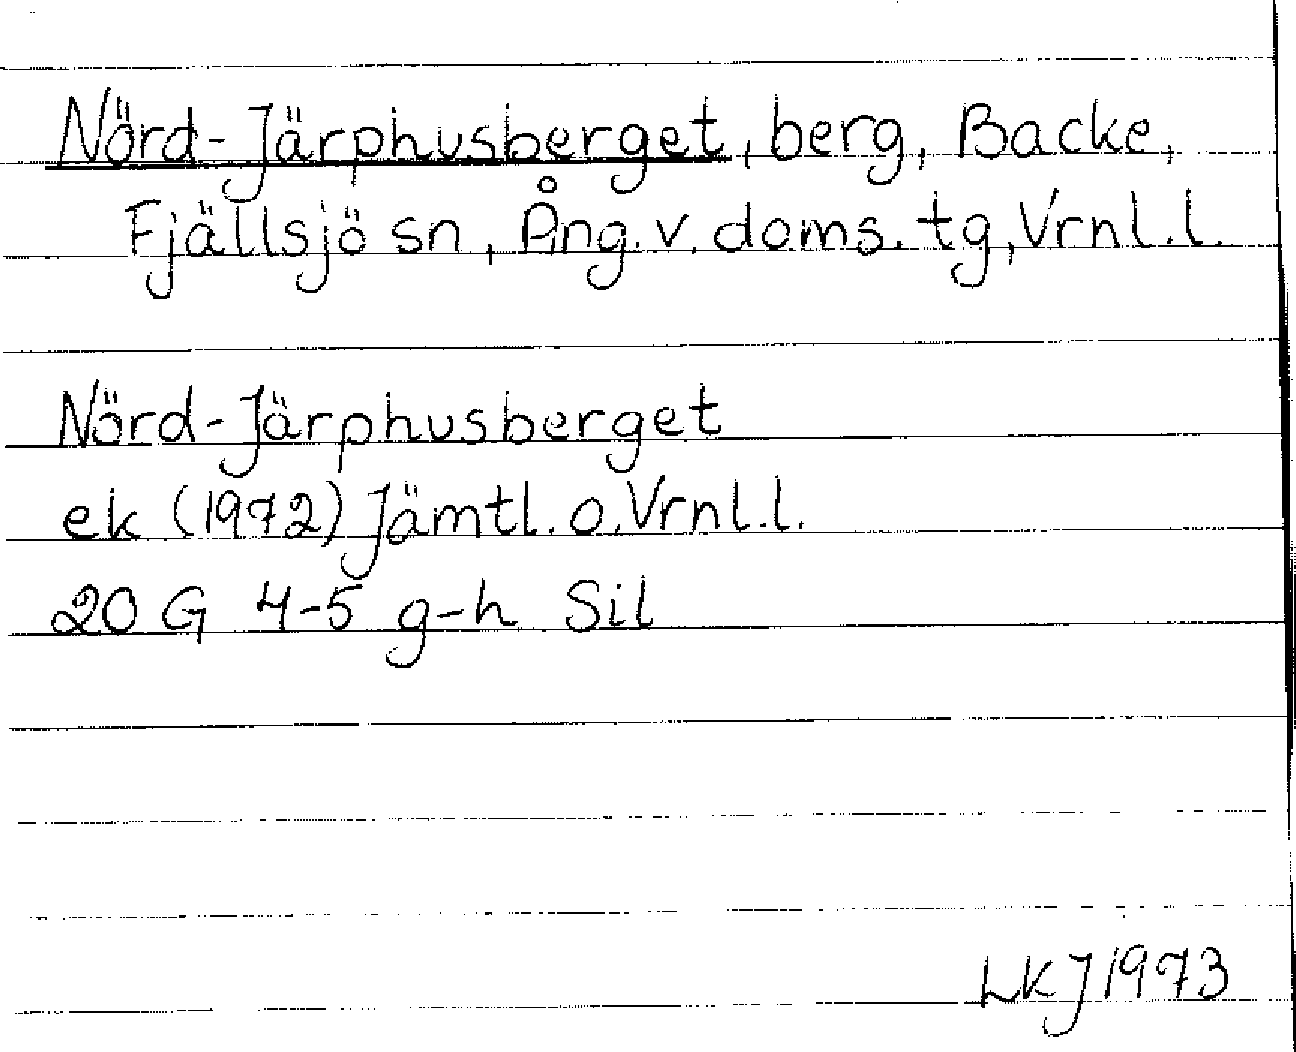 Nörd-Järphusberget, berg, Backe,
Fjällsjö sn, Ång. v. doms. tg, Vrnl.l.
Nörd-Järphusberget
ek (1972) Jämtl. o. Vrnl.l.
20 G 4-5 g-h Sil
LKJ 1973